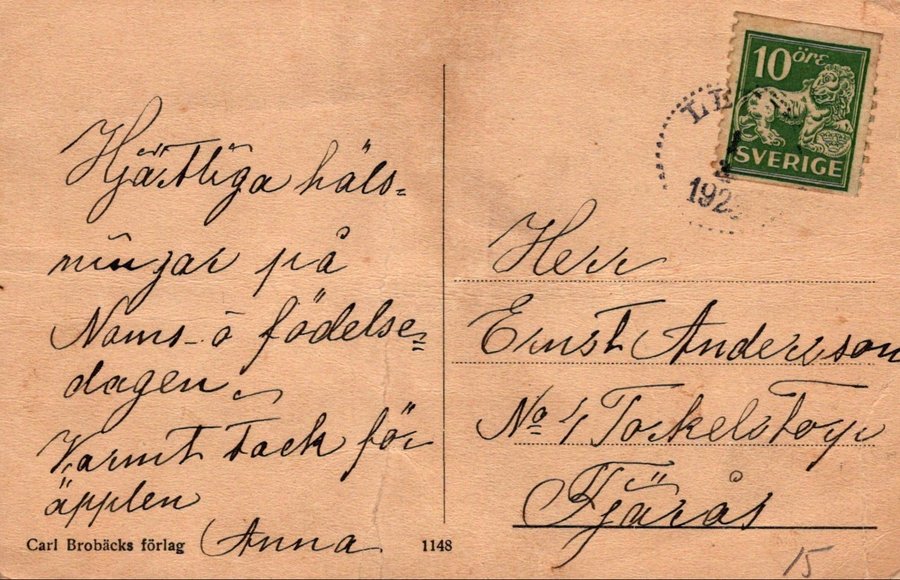 Hjärtliga häls=
ningar på
Nams- o födelse=
dagen.
Varmt tack för
äpplen
Anna
Carl Brobäcks förlag
1148
10 öre
SVERIGE
Herr
Ernst Andersson
No 4 Torkelstorp
Fjärås
15